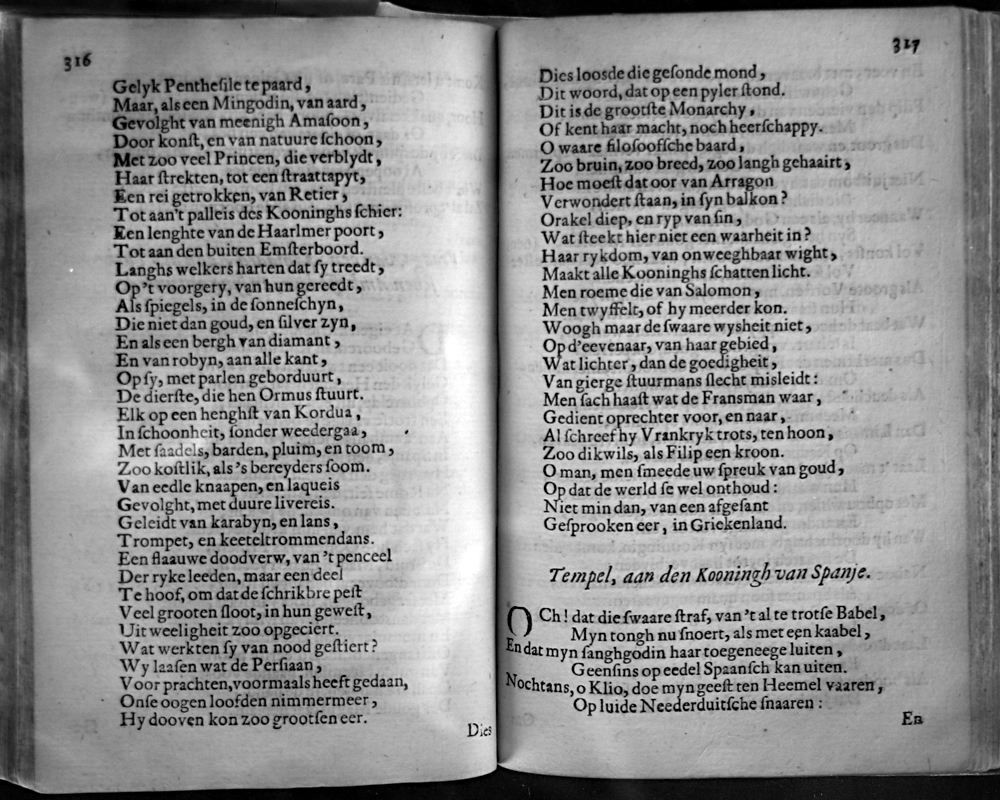 316
Gelyk Pentheſile te paard,
Maar, als een Mingodin, van aard,
Gevolght van meenigh Amaſoon,
Door konſt, en van natuure ſchoon,
Met zoo veel Princen, die verblydt,
Haar ſtrekten, tot een ſtraattapyt,
Een rei getrokken, van Retier,
Tot aan't palleis des Kooninghs ſchier:
Een lenghte van de Haarlmer poort,
Tot aan den buiten Emſterboord.
Langhs welkers harten dat ſy treedt,
Op 't voorgery, van hun gereedt,
Als ſpiegels, in de ſonneſchyn,
Die niet dan goud, en ſilver zyn,
En als een bergh van diamant,
En van robyn, aan alle kant,
Op ſy, met parlen geborduurt,
De dierſte, die hen Ormus ſtuurt.
Elk op een henghſt van Kordua,
In ſchoonheit, ſonder weedergaa,
Met ſaadels, barden, pluim, en toom,
Zoo koſtlik, als 's bereyders ſoom.
Van eedle knaapen, en laqueis
Gevolght, met duure livereis.
Geleidt van karabyn, en lans,
Trompet, en keeteltrommendans.
Een flaauwe doodverw, van 't penceel
Der ryke leeden, maar een deel
Te hoof, om dat de ſchrikbre peſt
Veel grooten ſloot, in hun geweſt,
Uit weeligheit zoo opgeciert.
Wat werkten ſy van nood geſtiert?
Wy laaſen wat de Perſiaan,
Voor prachten, voormaals heeft gedaan,
Onſe oogen loofden nimmermeer,
Hy dooven kon zoo grootſen eer.
Dies
317
Dies loosde die geſonde mond,
Dit woord, dat op een pyler ſtond.
Dit is de grootſte Monarchy,
Of kent haar macht, noch heerſchappy.
O waare filoſoofſche baard,
Zoo bruin, zoo breed, zoo langh gehaairt,
Hoe moeſt dat oor van Arragon
Verwondert ſtaan, in ſyn balkon?
Orakel diep, en ryp van ſin,
Wat ſteekt hier niet een waarheit in?
Haar rykdom, van onweeghbaar wight,
Maakt alle Kooninghs ſchatten licht.
Men roeme die van Salomon,
Men twyffelt, of hy meerder kon.
Woogh maar de ſwaare wysheit niet,
Op d'eevenaar, van haar gebied,
Wat lichter, dan de goedigheit,
Van gierge ſtuurmans ſlecht misleidt:
Men ſach haaſt wat de Fransman waar,
Gedient oprechter voor, en naar,
Al ſchreef hy Vrankryk trots, ten hoon,
Zoo dikwils, als Filip een kroon.
O man, men ſmeede uw ſpreuk van goud,
Op dat de werld ſe wel onthoud:
Niet min dan, van een afgeſant
Geſprooken eer, in Griekenland.
Tempel, aan den Kooningh van Spanje.
OCh! dat die ſwaare ſtraf, van 't al te trotſe Babel,
Myn tongh nu ſnoert, als met een kaabel,
En dat myn ſanghgodin haar toegeneege luiten,
Geenſins op eedel Spaanſch kan uiten.
Nochtans, o Klio, doe myn geeſt ten Heemel vaaren,
Op luide Neederduitſche ſnaaren:
En